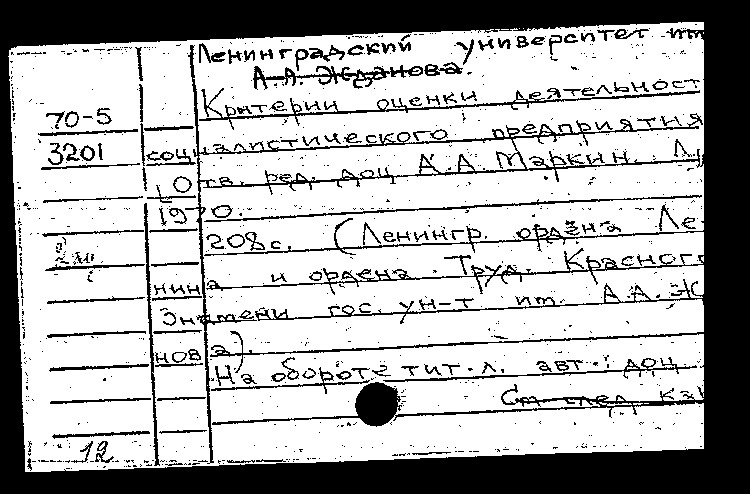 Ленинградский университет им
А. А. Жданова.
70-5
Критерии оценки деятельност
3201
социалистического предприятия
[Отв. ред. доц А.А. Маркин. Л.,
1970.
208с. (Ленингр. ордена Ле-
нина и ордена Труд. Красного
Знамени гос. ун-т им. А.А. Ж
нова).
На обороте тит. л. авт.: доц
См след ка
12